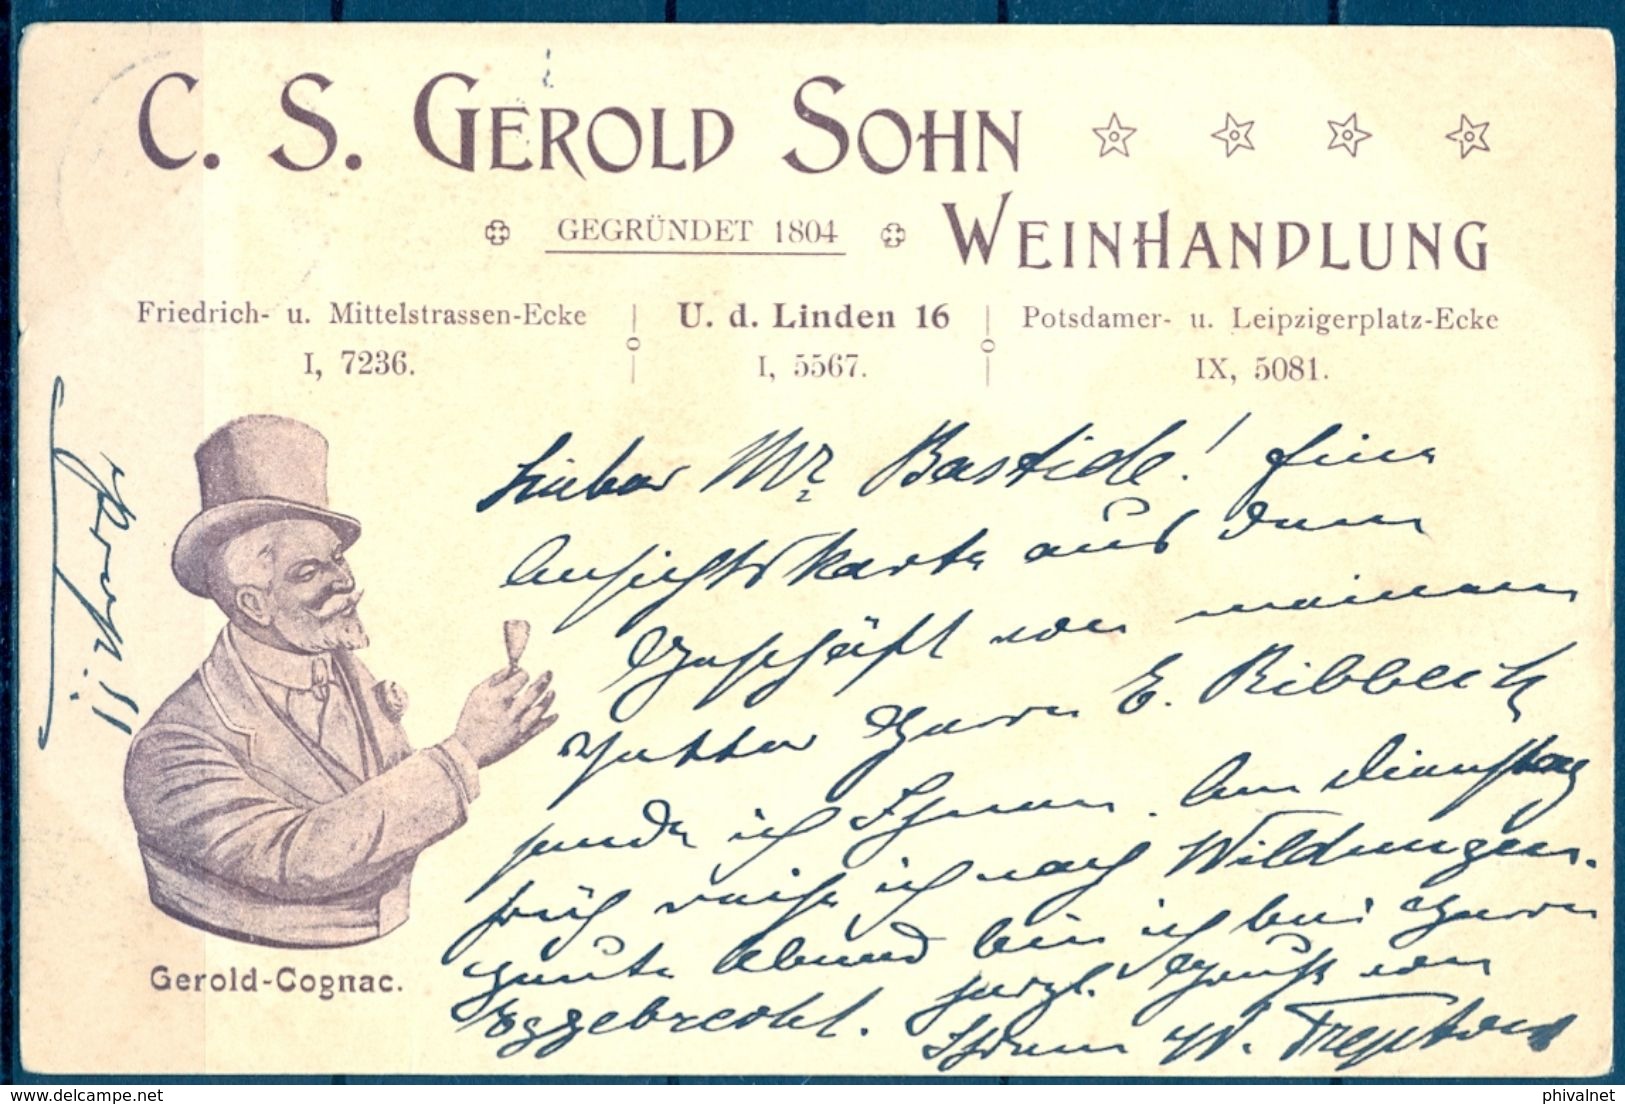 C. S. GEROLD SOHN
GEGRÜNDET 1804 WEINHANDLUNG
Friedrich- u. Mittelstrassen-Ecke | U. d. Linden 16 | Potsdamer- u. Leipzigerplatz-Ecke
I, 7236. I, 5567. IX, 5081.
Lieber Mr Bastide! Eine
Ansichtskarte aus dem
Geschäft von meinem
Vetter Herrn E. Ribbeck
sende ich Ihnen. Am Dienstag
früh reise ich nach Wildungen.
Heute Abend bin ich bei Herrn
Eggebrecht. Herzl. Gruß von
Ihrem W. Treptow
Prosit!!
Gerold-Cognac.
phivalnet